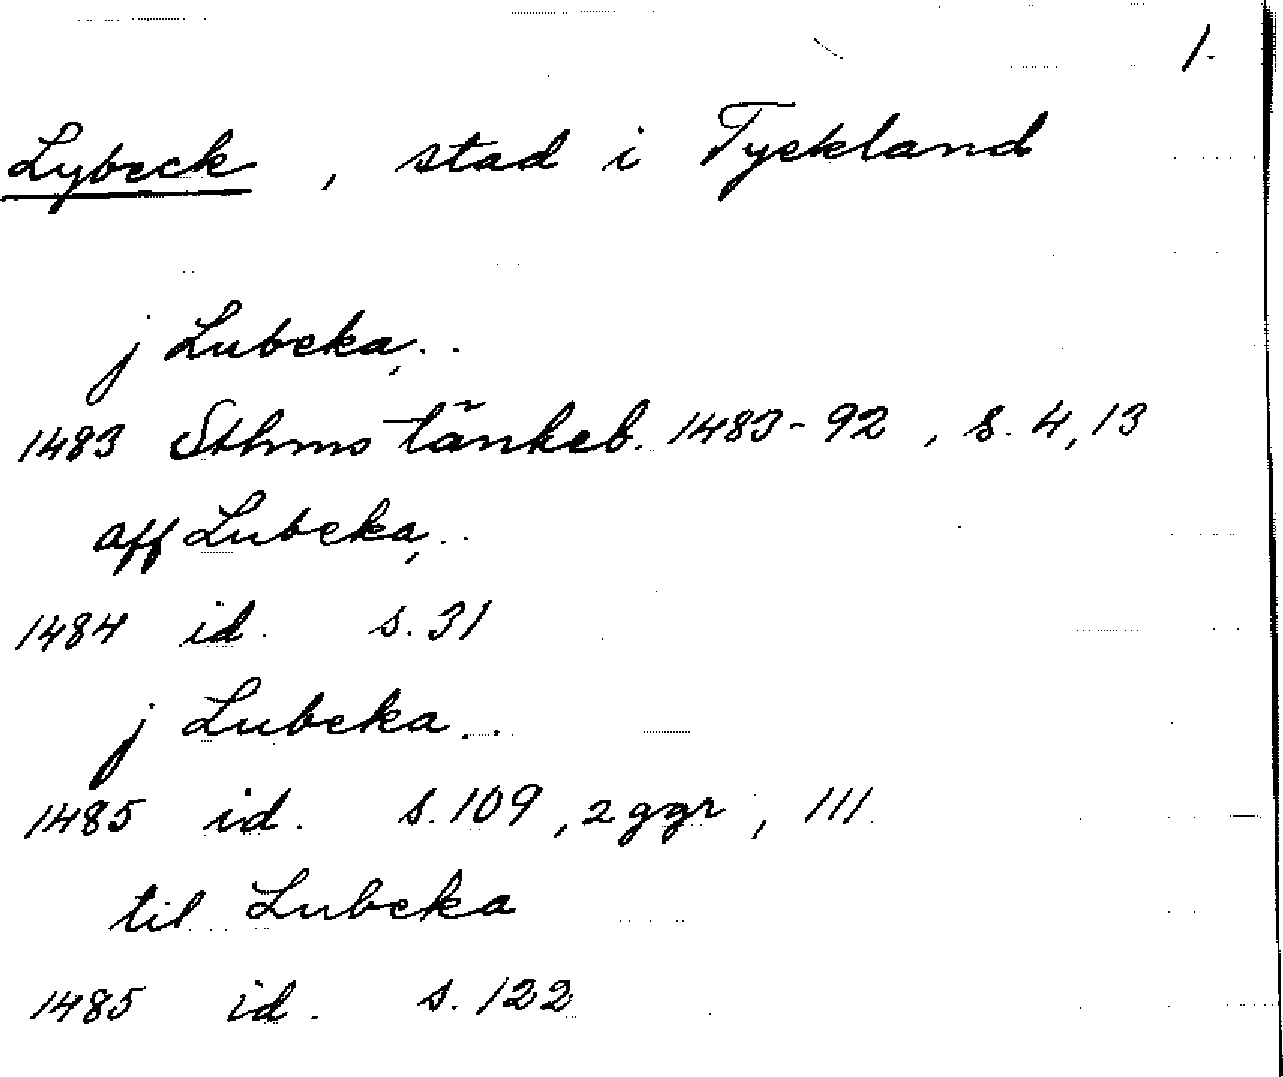 1.
Lybeck, stad i Tyskland
j Lubeka,
1483 Sthms tänkeb. 1483-92, s. 4, 13
aff Lubeka,
1484 id. s. 31
j Lubeka
1485 id. s. 109, 2 ggr, 111
til Lubeka
1485 id. s. 122